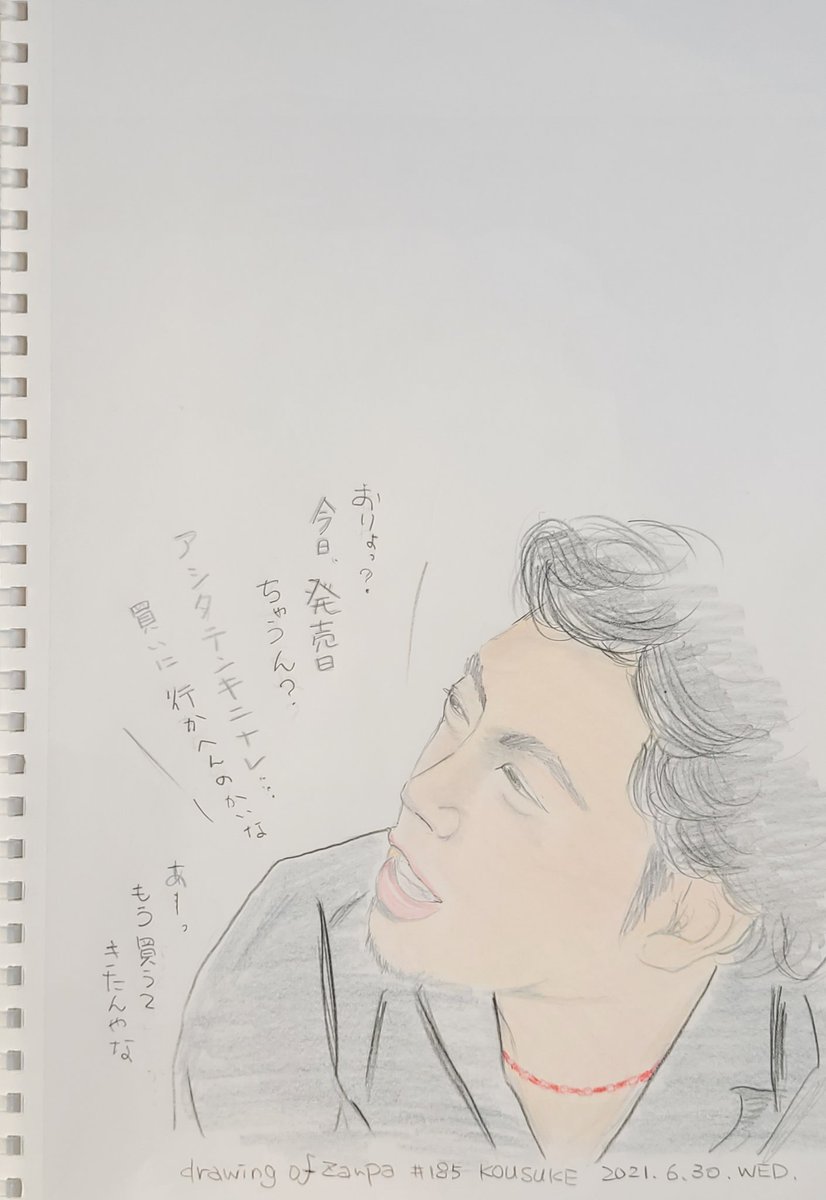 おりょっ?
今日、発売日
ちゃうん?
アシタテンキニナレ…
買いに行かへんのかいな
あーっ
もう買うて
きたんやな
drawing of Zanpa #185 KOUSUKE 2021.6.30.WED.